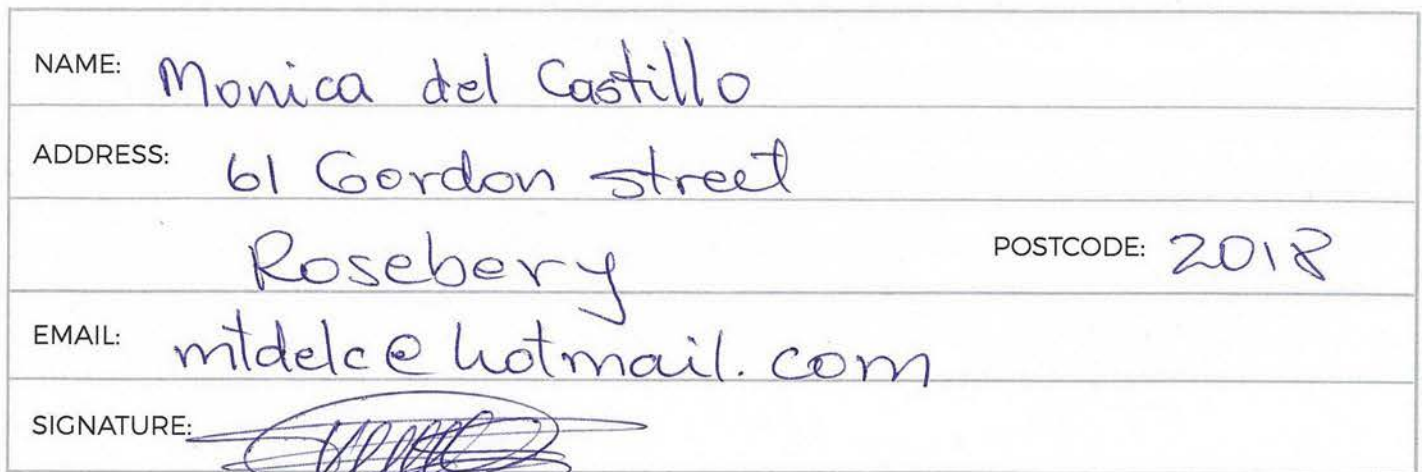 NAME: Monica del Castillo
ADDRESS: 61 Gordon street
Rosebery POSTCODE: 2018
EMAIL: mtdelc@hotmail.com
SIGNATURE: